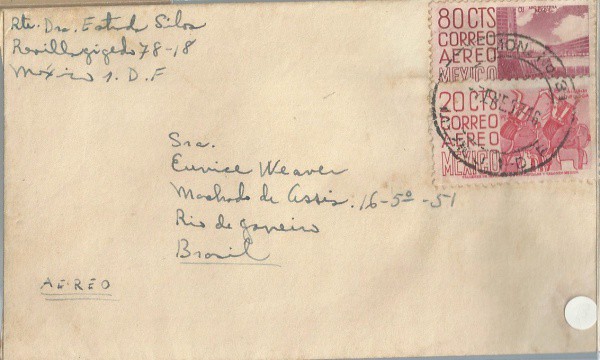 Rte. Dra. Esthel Silva
Revillagigedo 78-18
México 1. D. F
80 CTS
CORREO
AEREO
MEXICO
20 CTS
CORREO
AEREO
MEXICO
Sra.
Eunice Weaver
Machado de Assis. 16-5º-51
Rio de Janeiro
Brasil
AEREO